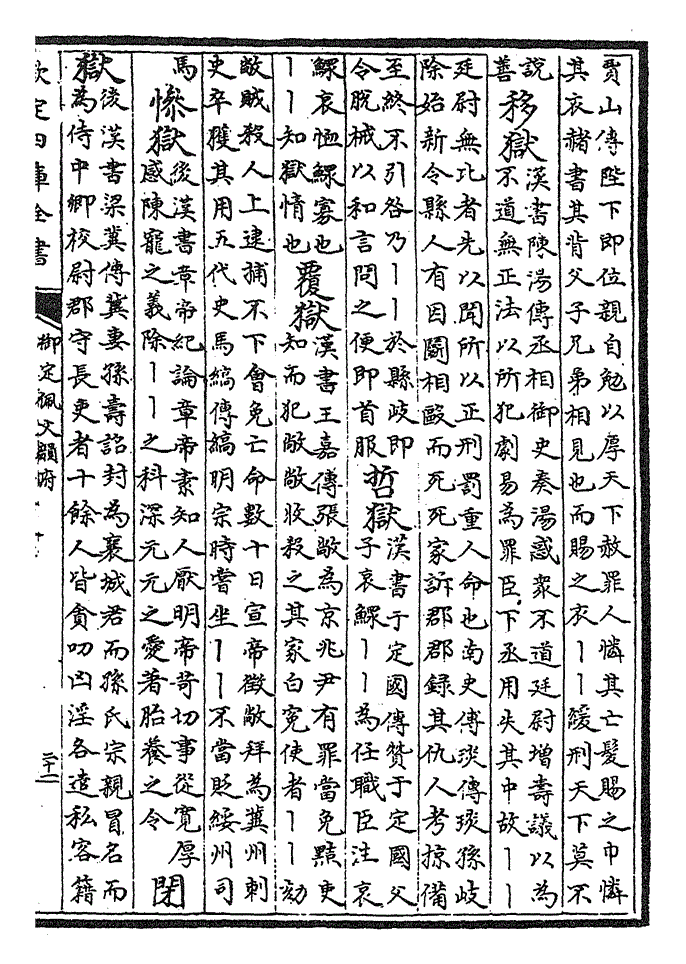 賈山傳陛下即位親自勉以厚天下赦罪人憐其亡髮賜之巾憐
其衣赭書其背父子兄弟相見也而賜之衣丨丨緩刑天下莫不
說
善
移獄
漢書陳湯傳丞相御史奏湯惑衆不道廷尉增壽議以為
不道無正法以所犯劇易為罪臣下丞用失其中故丨丨
廷尉無比者先以聞所以正刑罰重人命也南史傅琰傳琰孫岐
除始新令縣人有因鬭相毆而死死家訴郡郡錄其仇人考掠備
至終不引咎乃丨丨於縣岐即
令脫械以和言問之便即首服
哲獄
漢書于定國傳贊于定國父
子哀鰥丨丨為任職臣注哀
鰥哀恤鰥寡也
丨丨知獄情也
覆獄
漢書王嘉傳張敞為京兆尹有罪當免黠吏
知而犯敞敞收殺之其家自冤使者丨丨劾
敞賊殺人上逮捕不下會免亡命數十日宣帝徵敞拜為冀州刺
史卒獲其用五代史馬縞傳縞明宗時嘗坐丨丨不當貶綏州司
馬
慘獄
後漢書章帝紀論章帝素知人厭明帝苛切事從寬厚
感陳寵之義除丨丨之科深元元之愛著胎養之令
閉
獄
後漢書梁冀傳冀妻孫壽詔封為襄城君而孫氏宗親冒名而
為侍中卿校尉郡守長吏者十餘人皆貪叨凶淫各遣私客籍
欽定四庫全書
御定佩文韻府
二十二